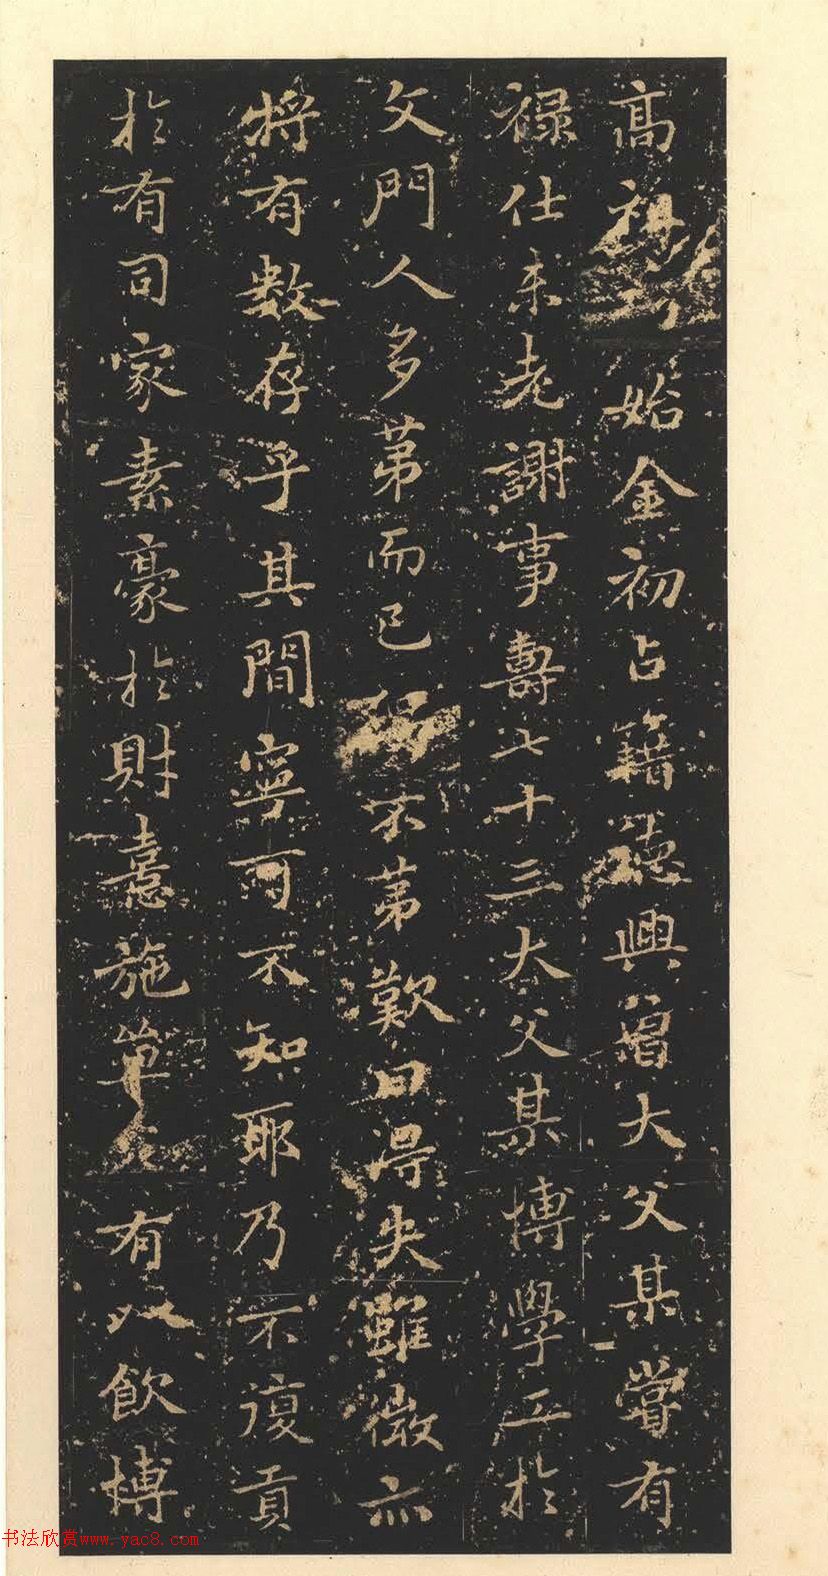 高祖 始金初占籍德興曾大父某嘗有
禄仕未老謝事壽七十三大父某博學工於
文門人多第而已 不第歎曰得失雖微亦
将有數存乎其間寧可不知耶乃不復貢
於有司家素豪於財憙施 有以飲博
书法欣赏www.yac8.com